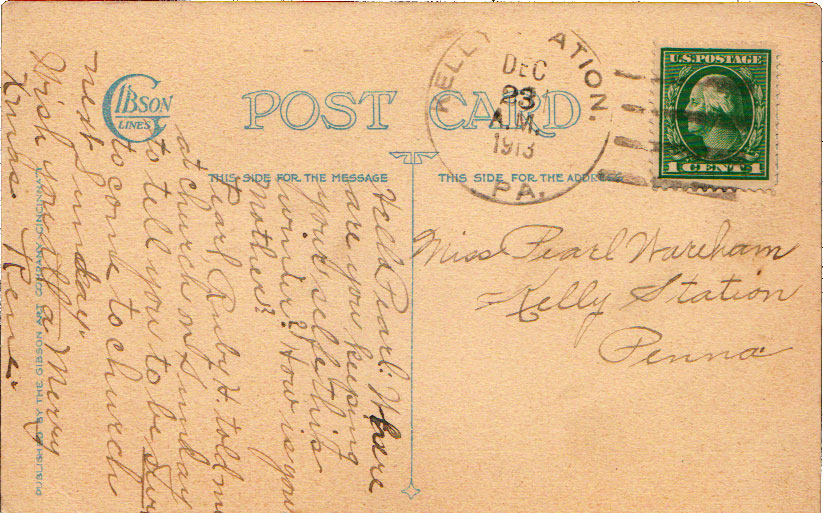 GIBSON
LINES
POST CARD
THIS SIDE FOR THE MESSAGE
THIS SIDE FOR THE ADDRESS
KELLY STATION,
DEC
23
A.M.
1913
PA.
U.S. POSTAGE
1 CENT 1
Miss Pearl Wareham
Kelly Station
Penna
Hello Pearl. Where
are you keeping
your self this
winter? How is your
Mother?
Pearl, Ruby H told me
at church on Sunday
to tell you to be sure
to come to church
next Sunday.
Wish you all a Merry
Xmas. Rene.
PUBLISHED BY THE GIBSON ART COMPANY, CINCINNATI